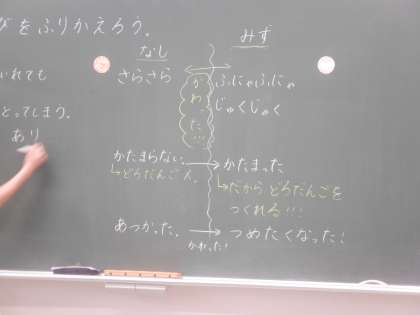 びをふりかえろう。
いれても
とってしまう。
あり
なし
みず
さらさら
かわった!!!
ふにゃふにゃ
じゅくじゅく
かたまらない。
どろだんご
かたまった
だから どろだんごを
つくれる!!!
あつかった。
つめたくなった!
かわった!